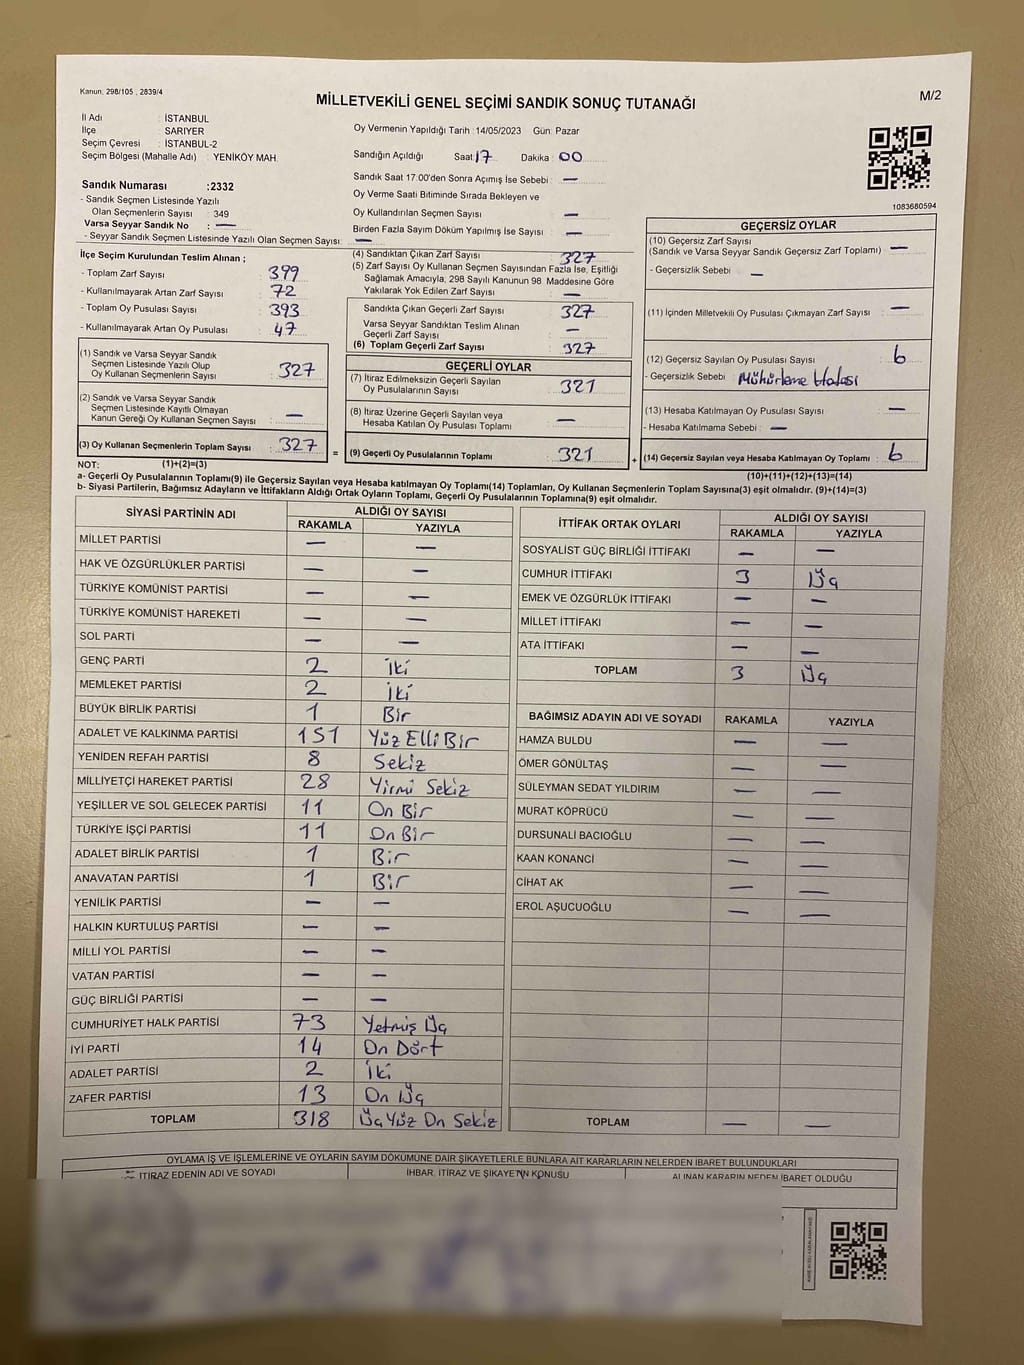 Kanun: 298/105 , 2839/4
MİLLETVEKİLİ GENEL SEÇİMİ SANDIK SONUÇ TUTANAĞI
M/2
İl Adı : İSTANBUL
İlçe : SARIYER
Seçim Çevresi : İSTANBUL-2
Seçim Bölgesi (Mahalle Adı) : YENİKÖY MAH.
Oy Vermenin Yapıldığı Tarih : 14/05/2023 Gün: Pazar
Sandığın Açıldığı Saat: 17 Dakika : 00
Sandık Saat 17:00'den Sonra Açımış İse Sebebi : —
Oy Verme Saati Bitiminde Sırada Bekleyen ve
Oy Kullandırılan Seçmen Sayısı —
Birden Fazla Sayım Döküm Yapılmış İse Sayısı : —
1083680594
Sandık Numarası :2332
- Sandık Seçmen Listesinde Yazılı
Olan Seçmenlerin Sayısı : 349
Varsa Seyyar Sandık No : —
- Seyyar Sandık Seçmen Listesinde Yazılı Olan Seçmen Sayısı: —
İlçe Seçim Kurulundan Teslim Alınan ;
- Toplam Zarf Sayısı : 399
- Kullanılmayarak Artan Zarf Sayısı : 72
- Toplam Oy Pusulası Sayısı : 393
- Kullanılmayarak Artan Oy Pusulası : 47
(1) Sandık ve Varsa Seyyar Sandık
Seçmen Listesinde Yazılı Olup
Oy Kullanan Seçmenlerin Sayısı : 327
(2) Sandık ve Varsa Seyyar Sandık
Seçmen Listesinde Kayıtlı Olmayan
Kanun Gereği Oy Kullanan Seçmen Sayısı : —
(3) Oy Kullanan Seçmenlerin Toplam Sayısı : 327
(1)+(2)=(3)
(4) Sandıktan Çıkan Zarf Sayısı : 327
(5) Zarf Sayısı Oy Kullanan Seçmen Sayısından Fazla İse, Eşitliği
Sağlamak Amacıyla; 298 Sayılı Kanunun 98. Maddesine Göre
Yakılarak Yok Edilen Zarf Sayısı : —
Sandıkta Çıkan Geçerli Zarf Sayısı : 327
Varsa Seyyar Sandıktan Teslim Alınan
Geçerli Zarf Sayısı : —
(6) Toplam Geçerli Zarf Sayısı : 327
GEÇERLİ OYLAR
(7) İtiraz Edilmeksizin Geçerli Sayılan
Oy Pusulalarının Sayısı : 321
(8) İtiraz Üzerine Geçerli Sayılan veya
Hesaba Katılan Oy Pusulası Toplamı : —
= (9) Geçerli Oy Pusulalarının Toplamı : 321
GEÇERSİZ OYLAR
(10) Geçersiz Zarf Sayısı
(Sandık ve Varsa Seyyar Sandık Geçersiz Zarf Toplamı) : —
- Geçersizlik Sebebi : —
(11) İçinden Milletvekili Oy Pusulası Çıkmayan Zarf Sayısı : —
(12) Geçersiz Sayılan Oy Pusulası Sayısı : 6
- Geçersizlik Sebebi : Mühürleme Hatası
(13) Hesaba Katılmayan Oy Pusulası Sayısı : —
- Hesaba Katılmama Sebebi : —
+ (14) Geçersiz Sayılan veya Hesaba Katılmayan Oy Toplamı : 6
(10)+(11)+(12)+(13)=(14)
NOT:
a- Geçerli Oy Pusulalarının Toplamı(9) ile Geçersiz Sayılan veya Hesaba katılmayan Oy Toplamı(14) Toplamları, Oy Kullanan Seçmenlerin Toplam Sayısına(3) eşit olmalıdır. (9)+(14)=(3)
b- Siyasi Partilerin, Bağımsız Adayların ve İttifakların Aldığı Ortak Oyların Toplamı, Geçerli Oy Pusulalarının Toplamına(9) eşit olmalıdır.
SİYASİ PARTİNİN ADI ALDIĞI OY SAYISI
RAKAMLA YAZIYLA
MİLLET PARTİSİ — —
HAK VE ÖZGÜRLÜKLER PARTİSİ — —
TÜRKİYE KOMÜNİST PARTİSİ — —
TÜRKİYE KOMÜNİST HAREKETİ — —
SOL PARTİ — —
GENÇ PARTİ 2 İki
MEMLEKET PARTİSİ 2 İki
BÜYÜK BİRLİK PARTİSİ 1 Bir
ADALET VE KALKINMA PARTİSİ 151 Yüz Elli Bir
YENİDEN REFAH PARTİSİ 8 Sekiz
MİLLİYETÇİ HAREKET PARTİSİ 28 Yirmi Sekiz
YEŞİLLER VE SOL GELECEK PARTİSİ 11 On Bir
TÜRKİYE İŞÇİ PARTİSİ 11 On Bir
ADALET BİRLİK PARTİSİ 1 Bir
ANAVATAN PARTİSİ 1 Bir
YENİLİK PARTİSİ — —
HALKIN KURTULUŞ PARTİSİ — —
MİLLİ YOL PARTİSİ — —
VATAN PARTİSİ — —
GÜÇ BİRLİĞİ PARTİSİ — —
CUMHURİYET HALK PARTİSİ 73 Yetmiş Üç
İYİ PARTİ 14 On Dört
ADALET PARTİSİ 2 İki
ZAFER PARTİSİ 13 On Üç
TOPLAM 318 Üç Yüz On Sekiz
İTTİFAK ORTAK OYLARI ALDIĞI OY SAYISI
RAKAMLA YAZIYLA
SOSYALİST GÜÇ BİRLİĞİ İTTİFAKI — —
CUMHUR İTTİFAKI 3 Üç
EMEK VE ÖZGÜRLÜK İTTİFAKI — —
MİLLET İTTİFAKI — —
ATA İTTİFAKI — —
TOPLAM 3 Üç
BAĞIMSIZ ADAYIN ADI VE SOYADI RAKAMLA YAZIYLA
HAMZA BULDU — —
ÖMER GÖNÜLTAŞ — —
SÜLEYMAN SEDAT YILDIRIM — —
MURAT KÖPRÜCÜ — —
DURSUNALİ BACIOĞLU — —
KAAN KONANCİ — —
CİHAT AK — —
EROL AŞUCUOĞLU — —
TOPLAM — —
OYLAMA İŞ VE İŞLEMLERİNE VE OYLARIN SAYIM DÖKÜMÜNE DAİR ŞİKAYETLERLE BUNLARA AİT KARARLARIN NELERDEN İBARET BULUNDUKLARI
İTİRAZ EDENİN ADI VE SOYADI İHBAR, İTİRAZ VE ŞİKAYETİN KONUSU ALINAN KARARIN NEDEN İBARET OLDUĞU